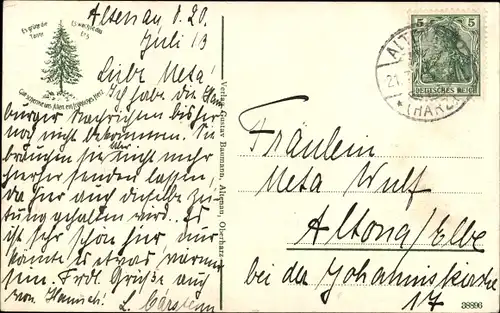 Es grüne die Tanne
Es wachse das Erz
Gott schenke uns Allen ein fröhliches Herz
Altenau d. 20.
Juli 13
Liebe Meta!
Ich habe die Ham
burger Nachrichten bisher
noch nicht bekommen. Sie
brauchen sie aber nicht mehr
hierher senden lassen,
da hier auch dieselbe Zei
tung gehalten wird. Es
ist sehr schön hier nur
könnte es etwas wärmer
sein. Frdl. Grüße auch
von Hannchen L. Carstens
Verlag Gustav Baumann, Altenau, Oberharz.
5 5
DEUTSCHES REICH
ALT
21.
* (HARZ)
Fräulein
Meta Wulf
Altona/Elbe
bei der Johanniskirche
17
38896